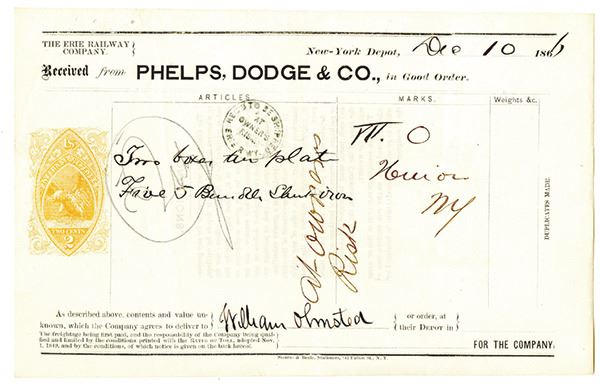 THE ERIE RAILWAY COMPANY.
New-York Depot, Dec 10 1866
Received from PHELPS, DODGE & CO., in Good Order.
ARTICLES.
MARKS.
Weights &c.
TO BE SHIPPED AT OWNERS RISK
Two boxes tin plate
Five 5 Bundles Sheet iron
O
NY
at owners Risk
TWO CENTS
2
DUPLICATES MADE.
As described above, contents and value un-
known, which the Company agrees to deliver to William Olmsted or order, at their Depot in
The freightage being first paid, and the responsibility of the Company being quali-
fied and limited by the conditions printed with the RATES OF TOLL, adopted Nov.
1, 1849, and by the conditions, of which notice is given on the back hereof.
FOR THE COMPANY.
Stationers, Fulton St., N. Y.